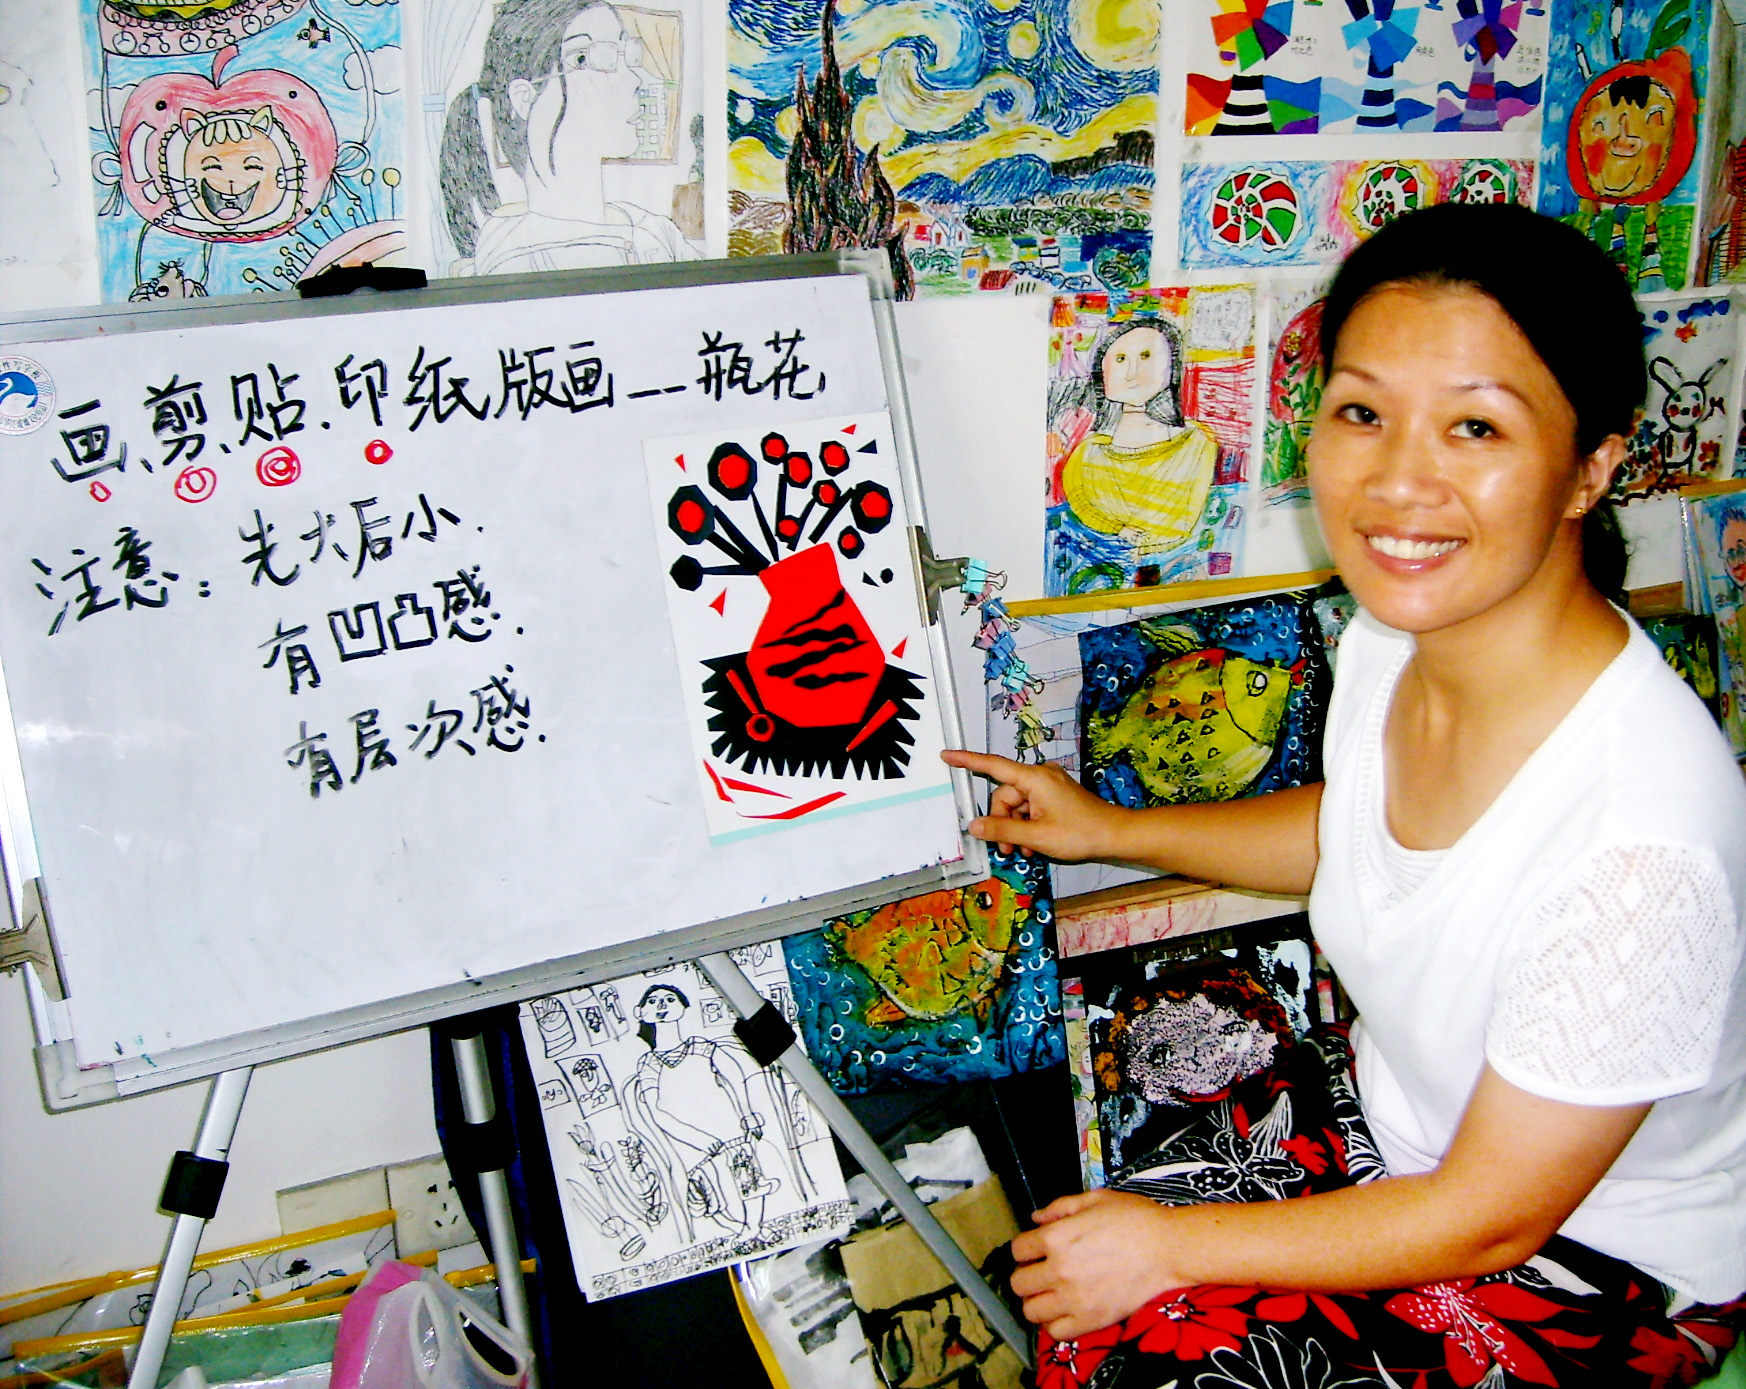 画、剪、贴、印纸版画__瓶花
注意：先大后小.
有凹凸感.
有层次感.